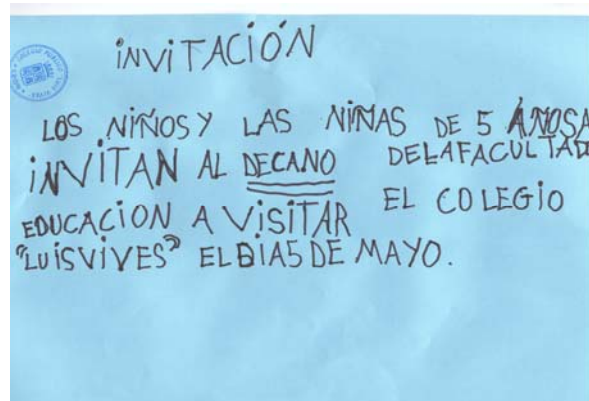 iNViTACiÓN
LOS NiÑOS Y LAS NiÑAS DE 5 AÑOSA
iNViTAN AL DECANO DELAFACULTADE
EDUCACiON A ViSiTAR EL COLEGiO
"LUiSViVES" ELDIA5 DE MAYO.